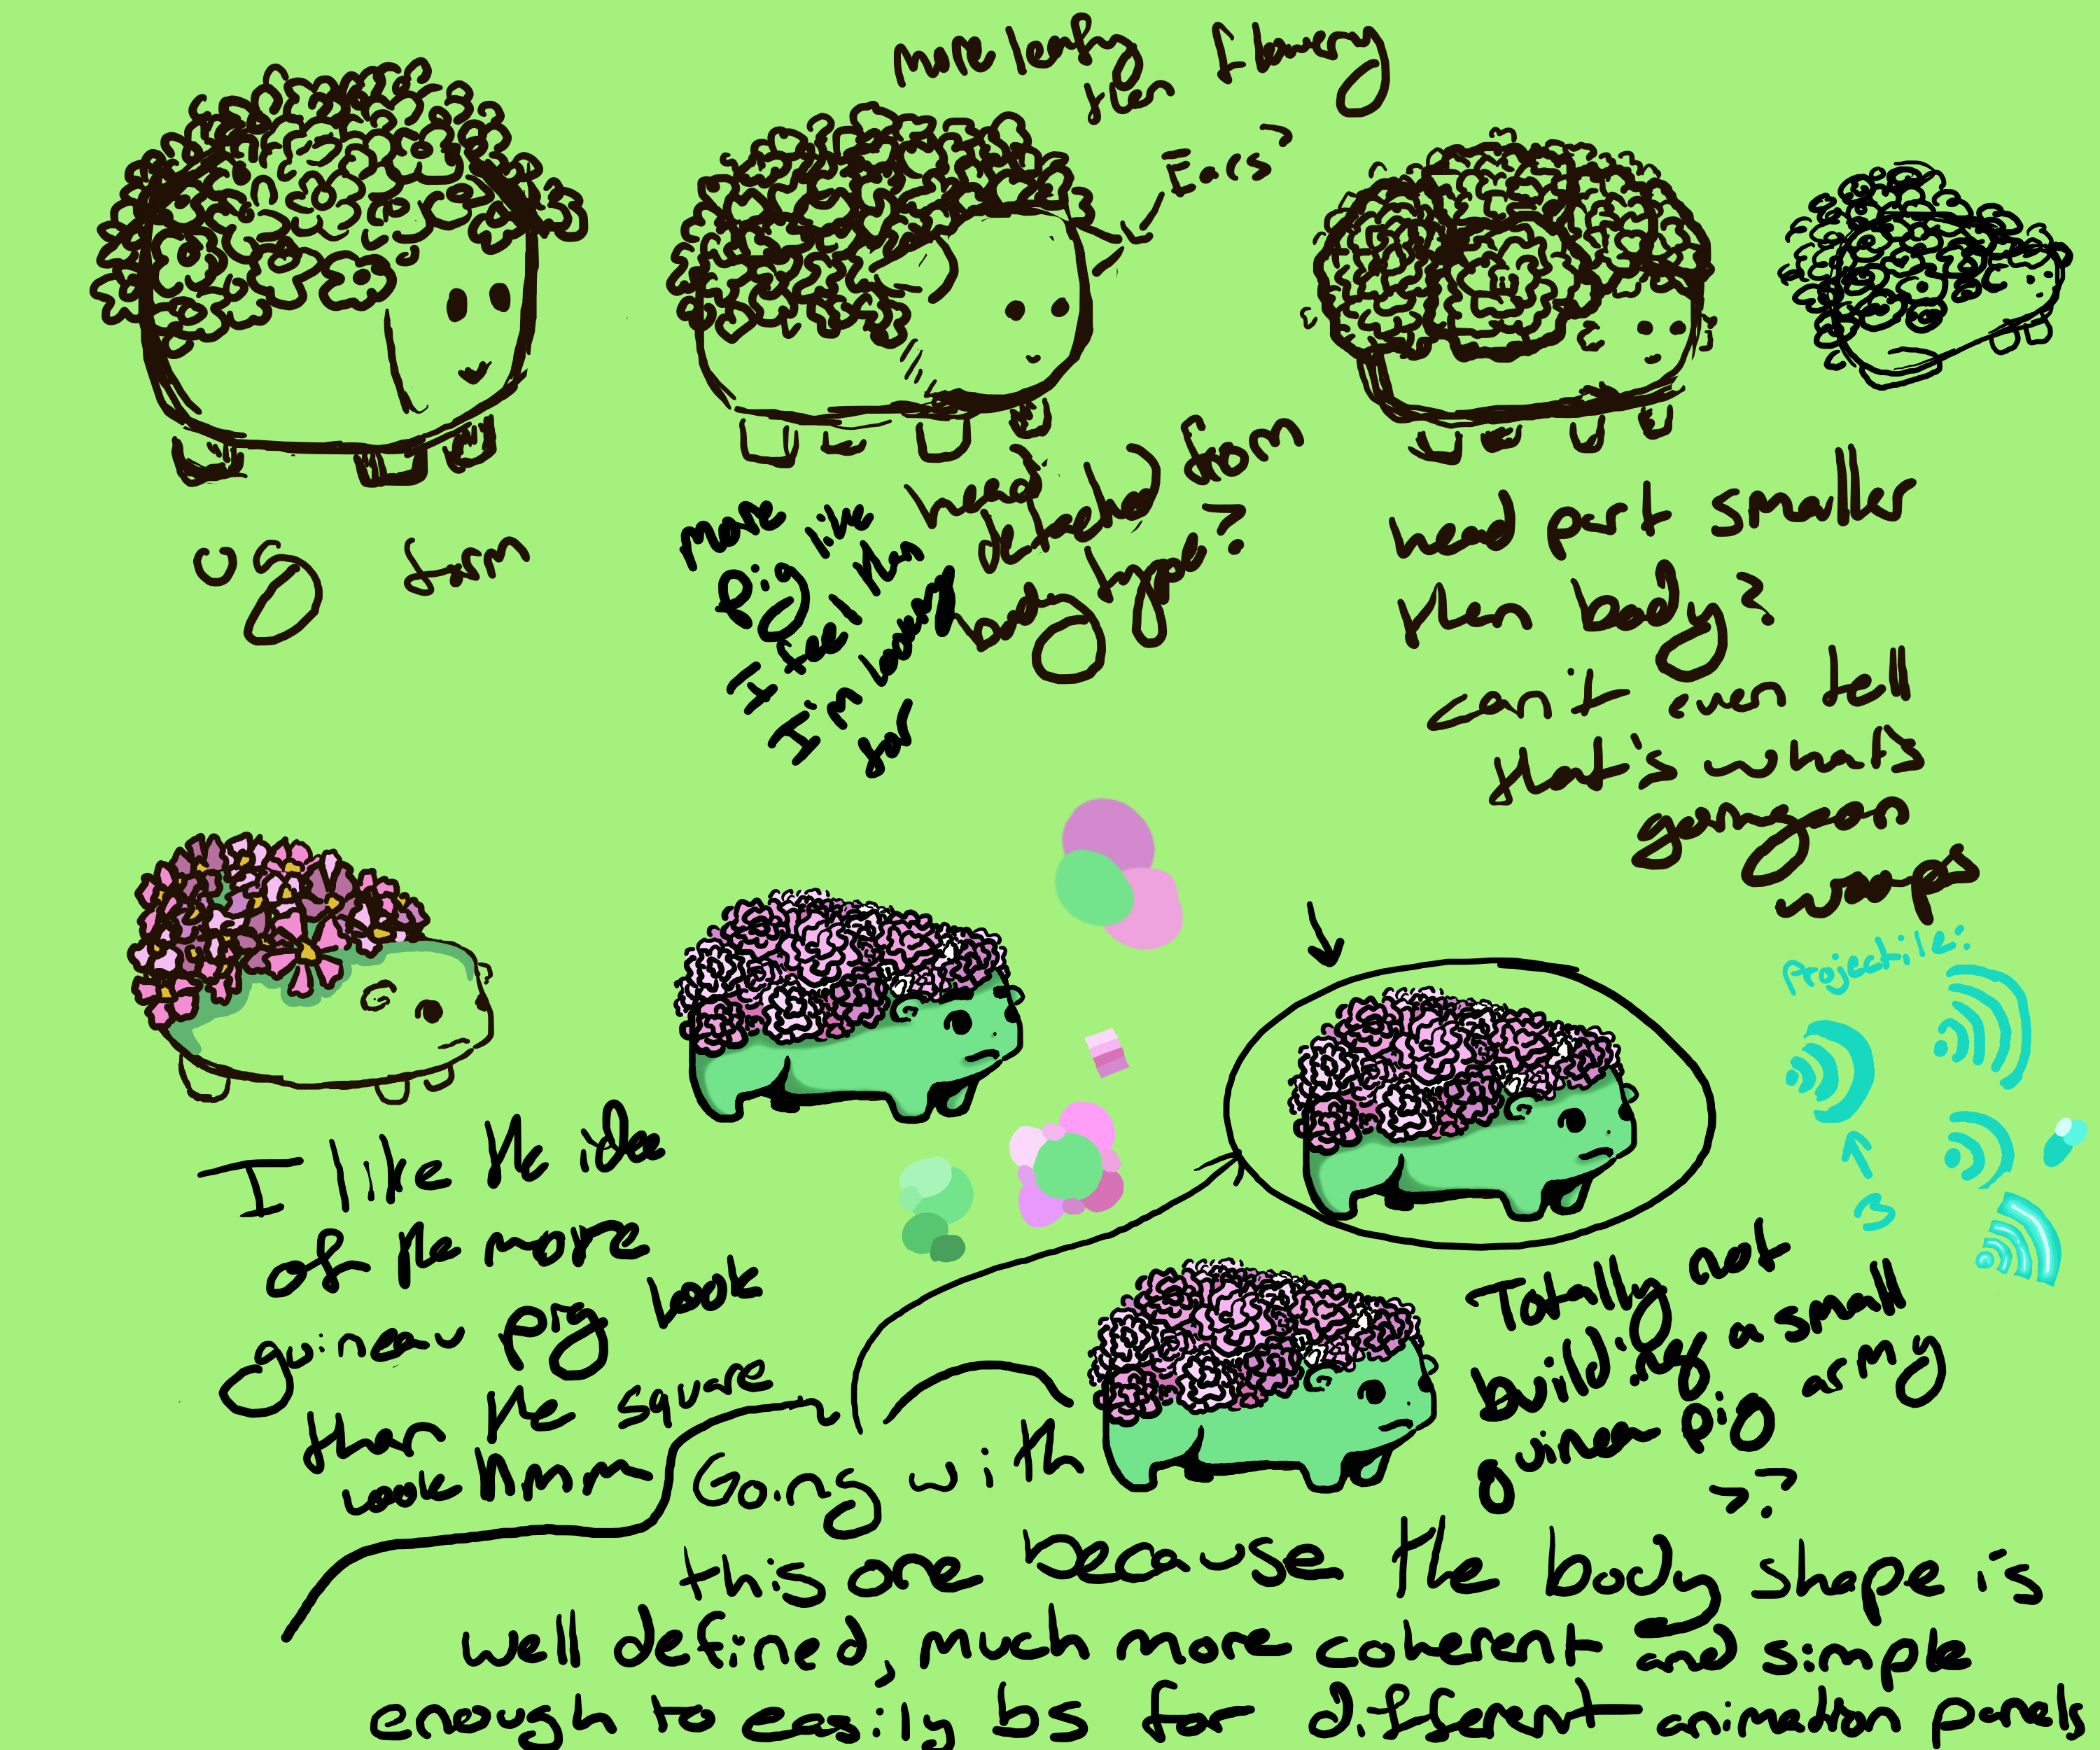 More leafy
then flowery
Ears?
og form
More like
pig
I feel than
I'm looking
for
head
detached from
body type?
head part smaller
then body?
can't even tell
that's what's
goingeon
woops
Projectile:
3
I like the idea
of the more
guineau pig look
than the square
look hmmm
Totally not
building a small
guinea pig army
>?
Going with
this one because the body shape is
well defined, much more coherent and simple
enough to easily bs for different animation panels